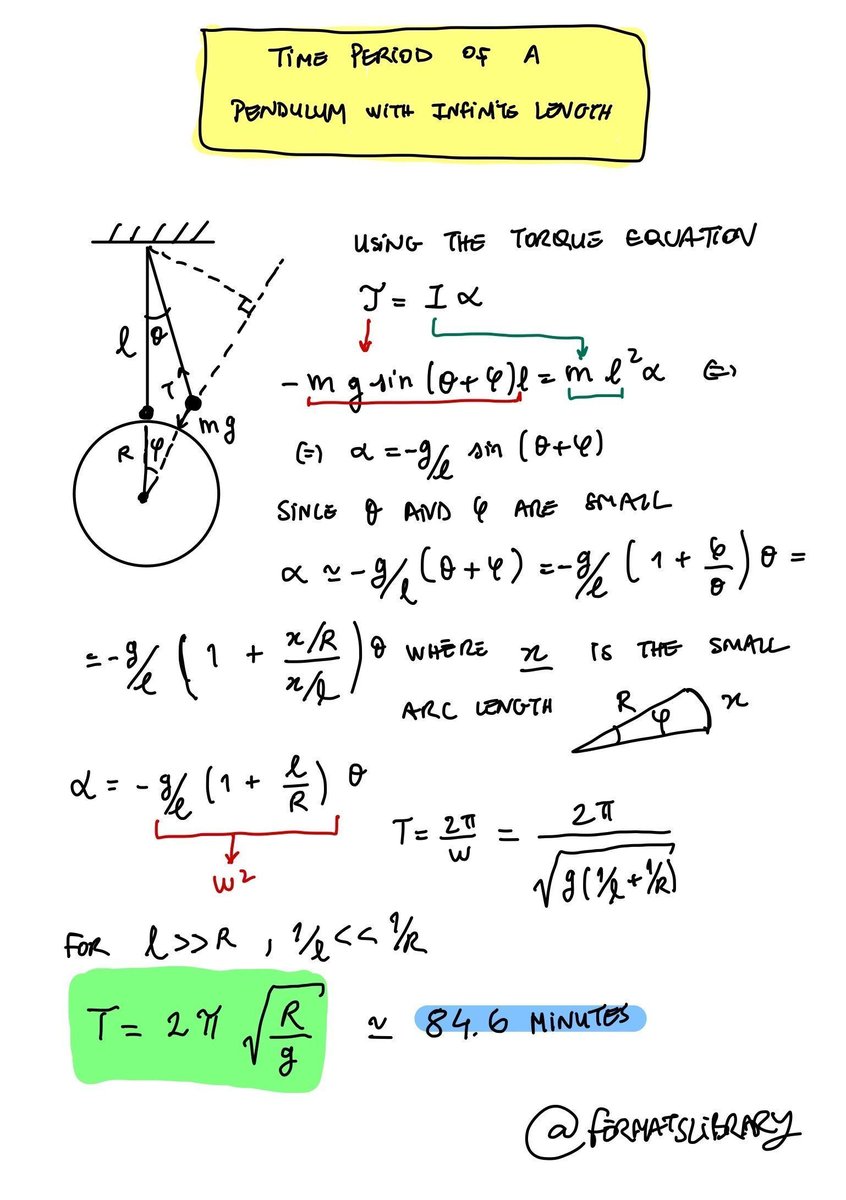 TIME PERIOD OF A
PENDULUM WITH INFINITE LENGTH
USING THE TORQUE EQUATION
τ = I α
- m g sin (θ+φ) l = m l² α ⇔
⇔ α = -g/l sin (θ+φ)
SINCE θ AND φ ARE SMALL
α ≃ -g/l (θ+φ) = -g/l (1 + φ/θ) θ =
= -g/l (1 + (x/R)/(x/l)) θ WHERE x IS THE SMALL
ARC LENGTH
R φ x
l θ
T
mg
R φ
α = -g/l (1 + l/R) θ
w²
T = 2π/w = 2π/√(g(1/l + 1/R))
FOR l >> R , 1/l << 1/R
T = 2π √(R/g) ≃ 84.6 MINUTES
@FORMATSLIBRARY